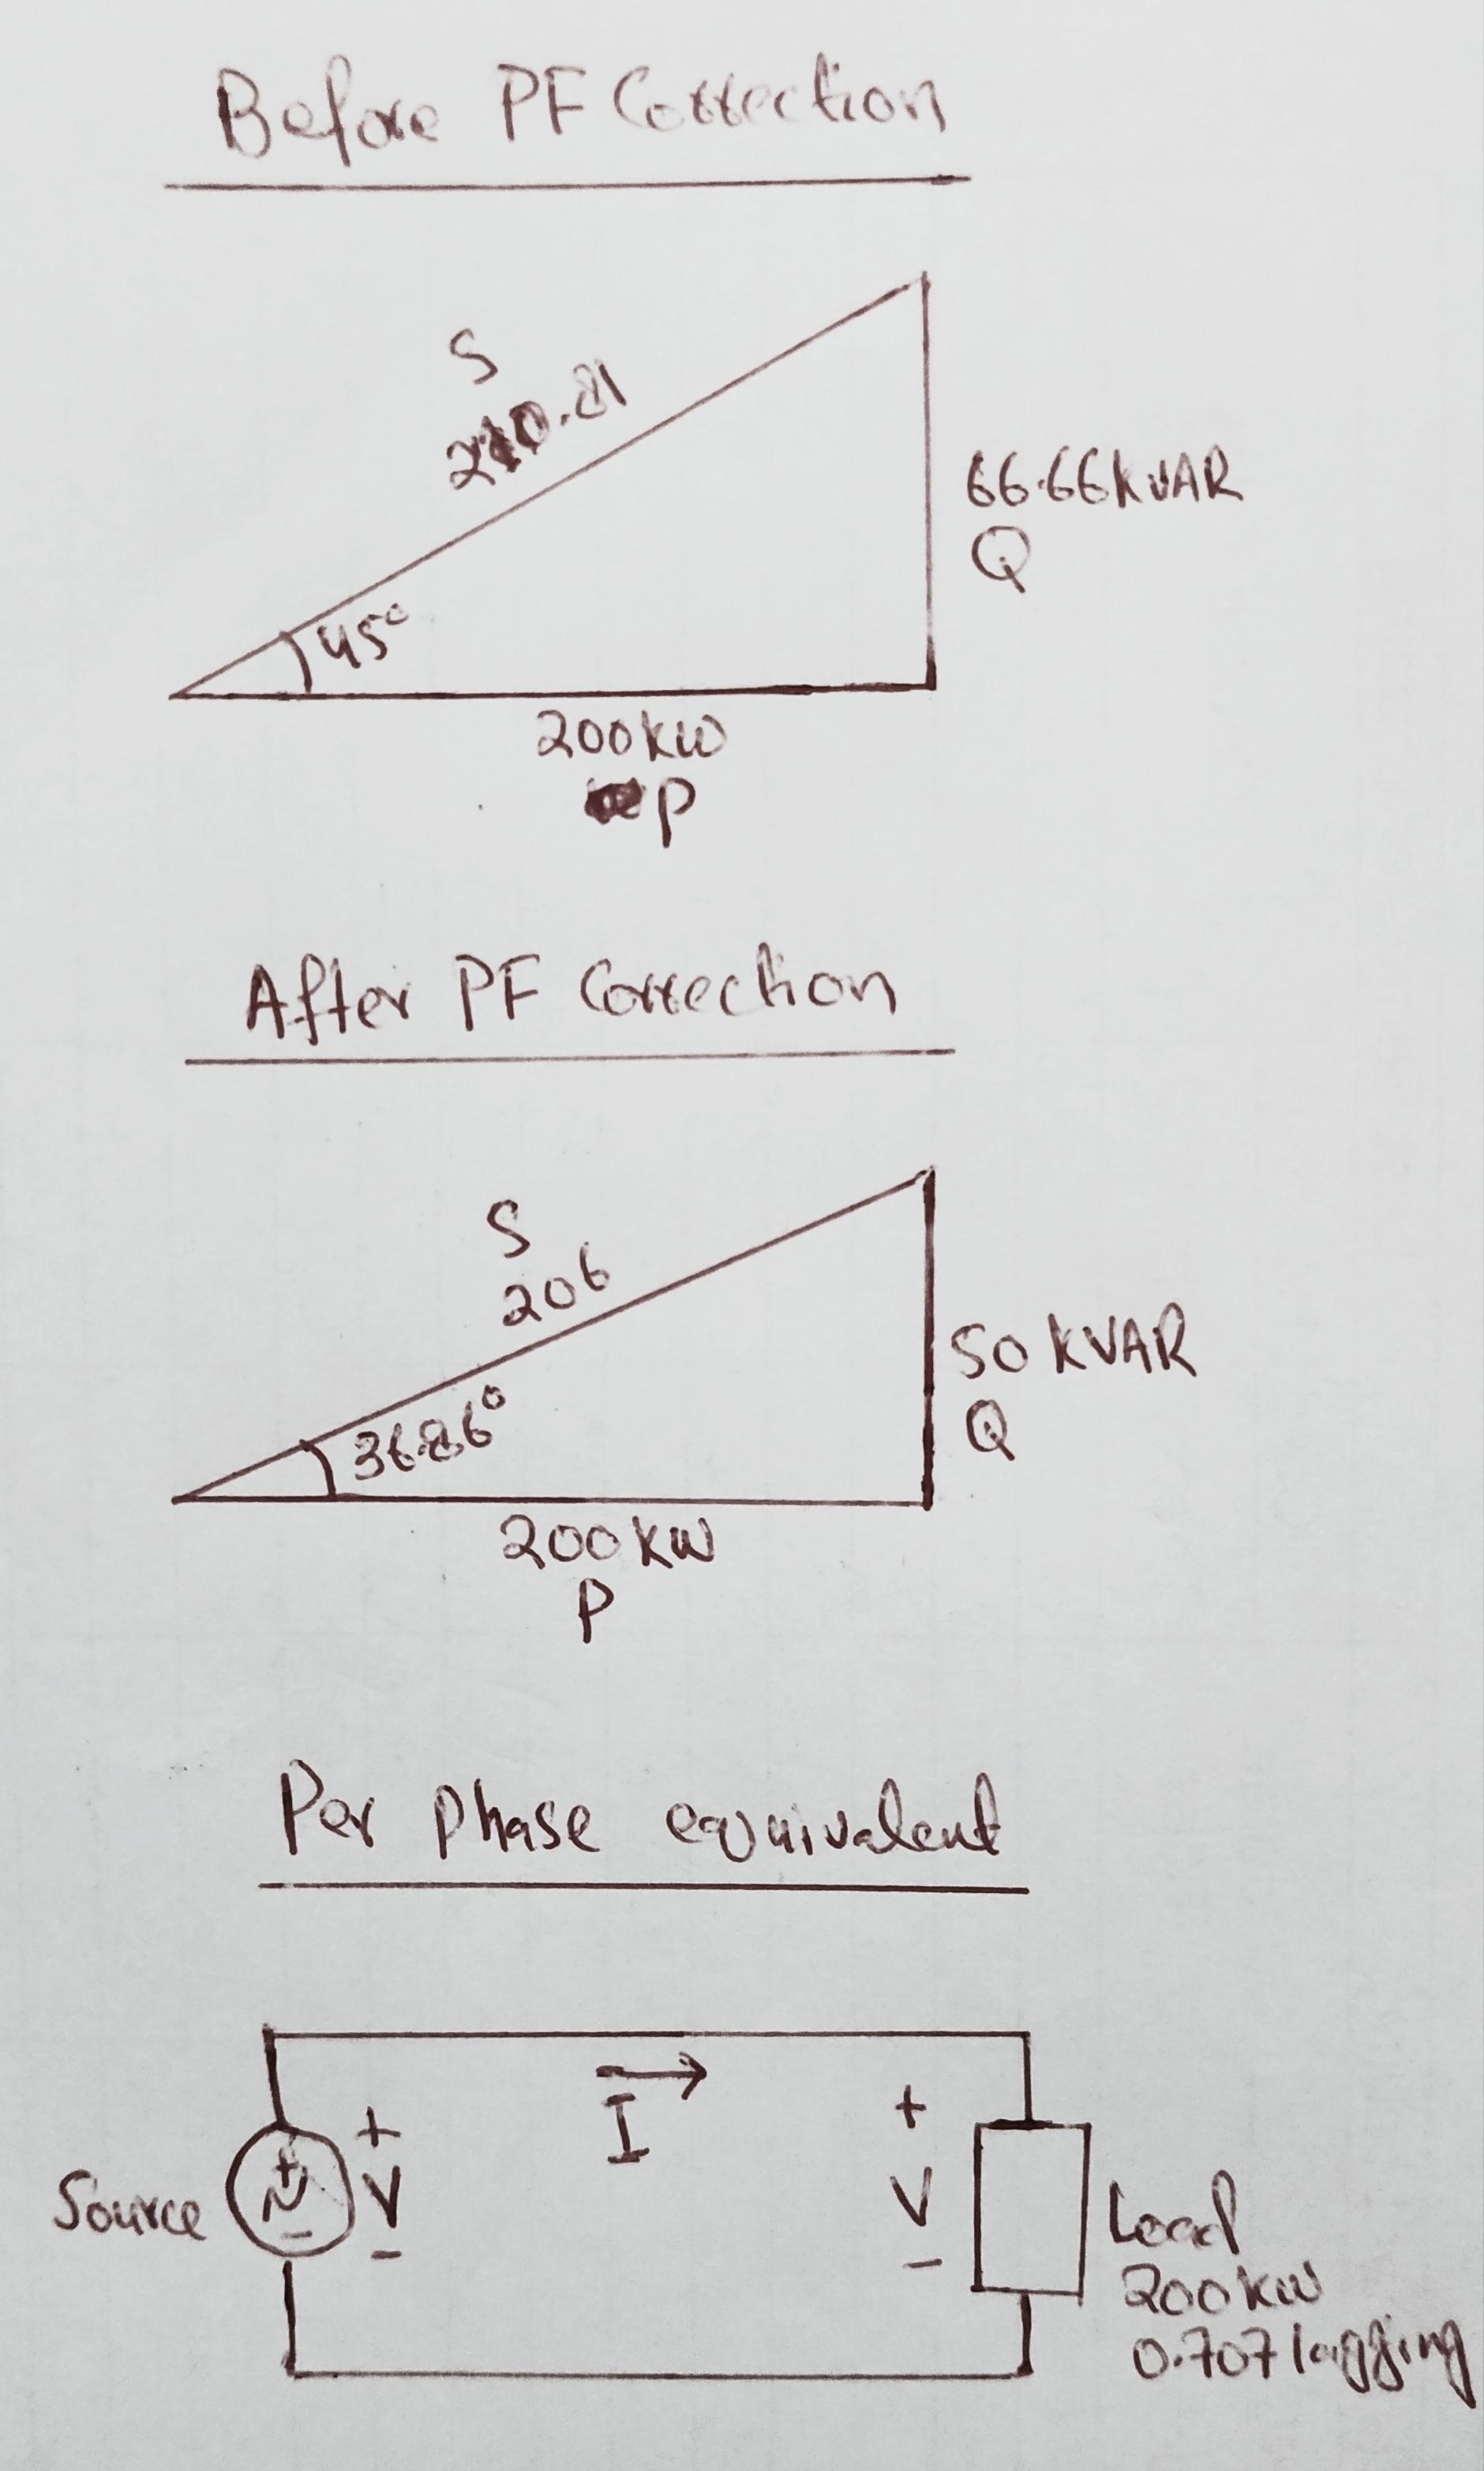 Before PF Correction
S
210.81
66.66kVAR
Q
45°
200kW
P
After PF Correction
S
206
50 KVAR
Q
36.86°
200kW
P
Per Phase equivalent
I
+
V
-
+
V
-
+
-
Source
Load
200kW
0.707 lagging